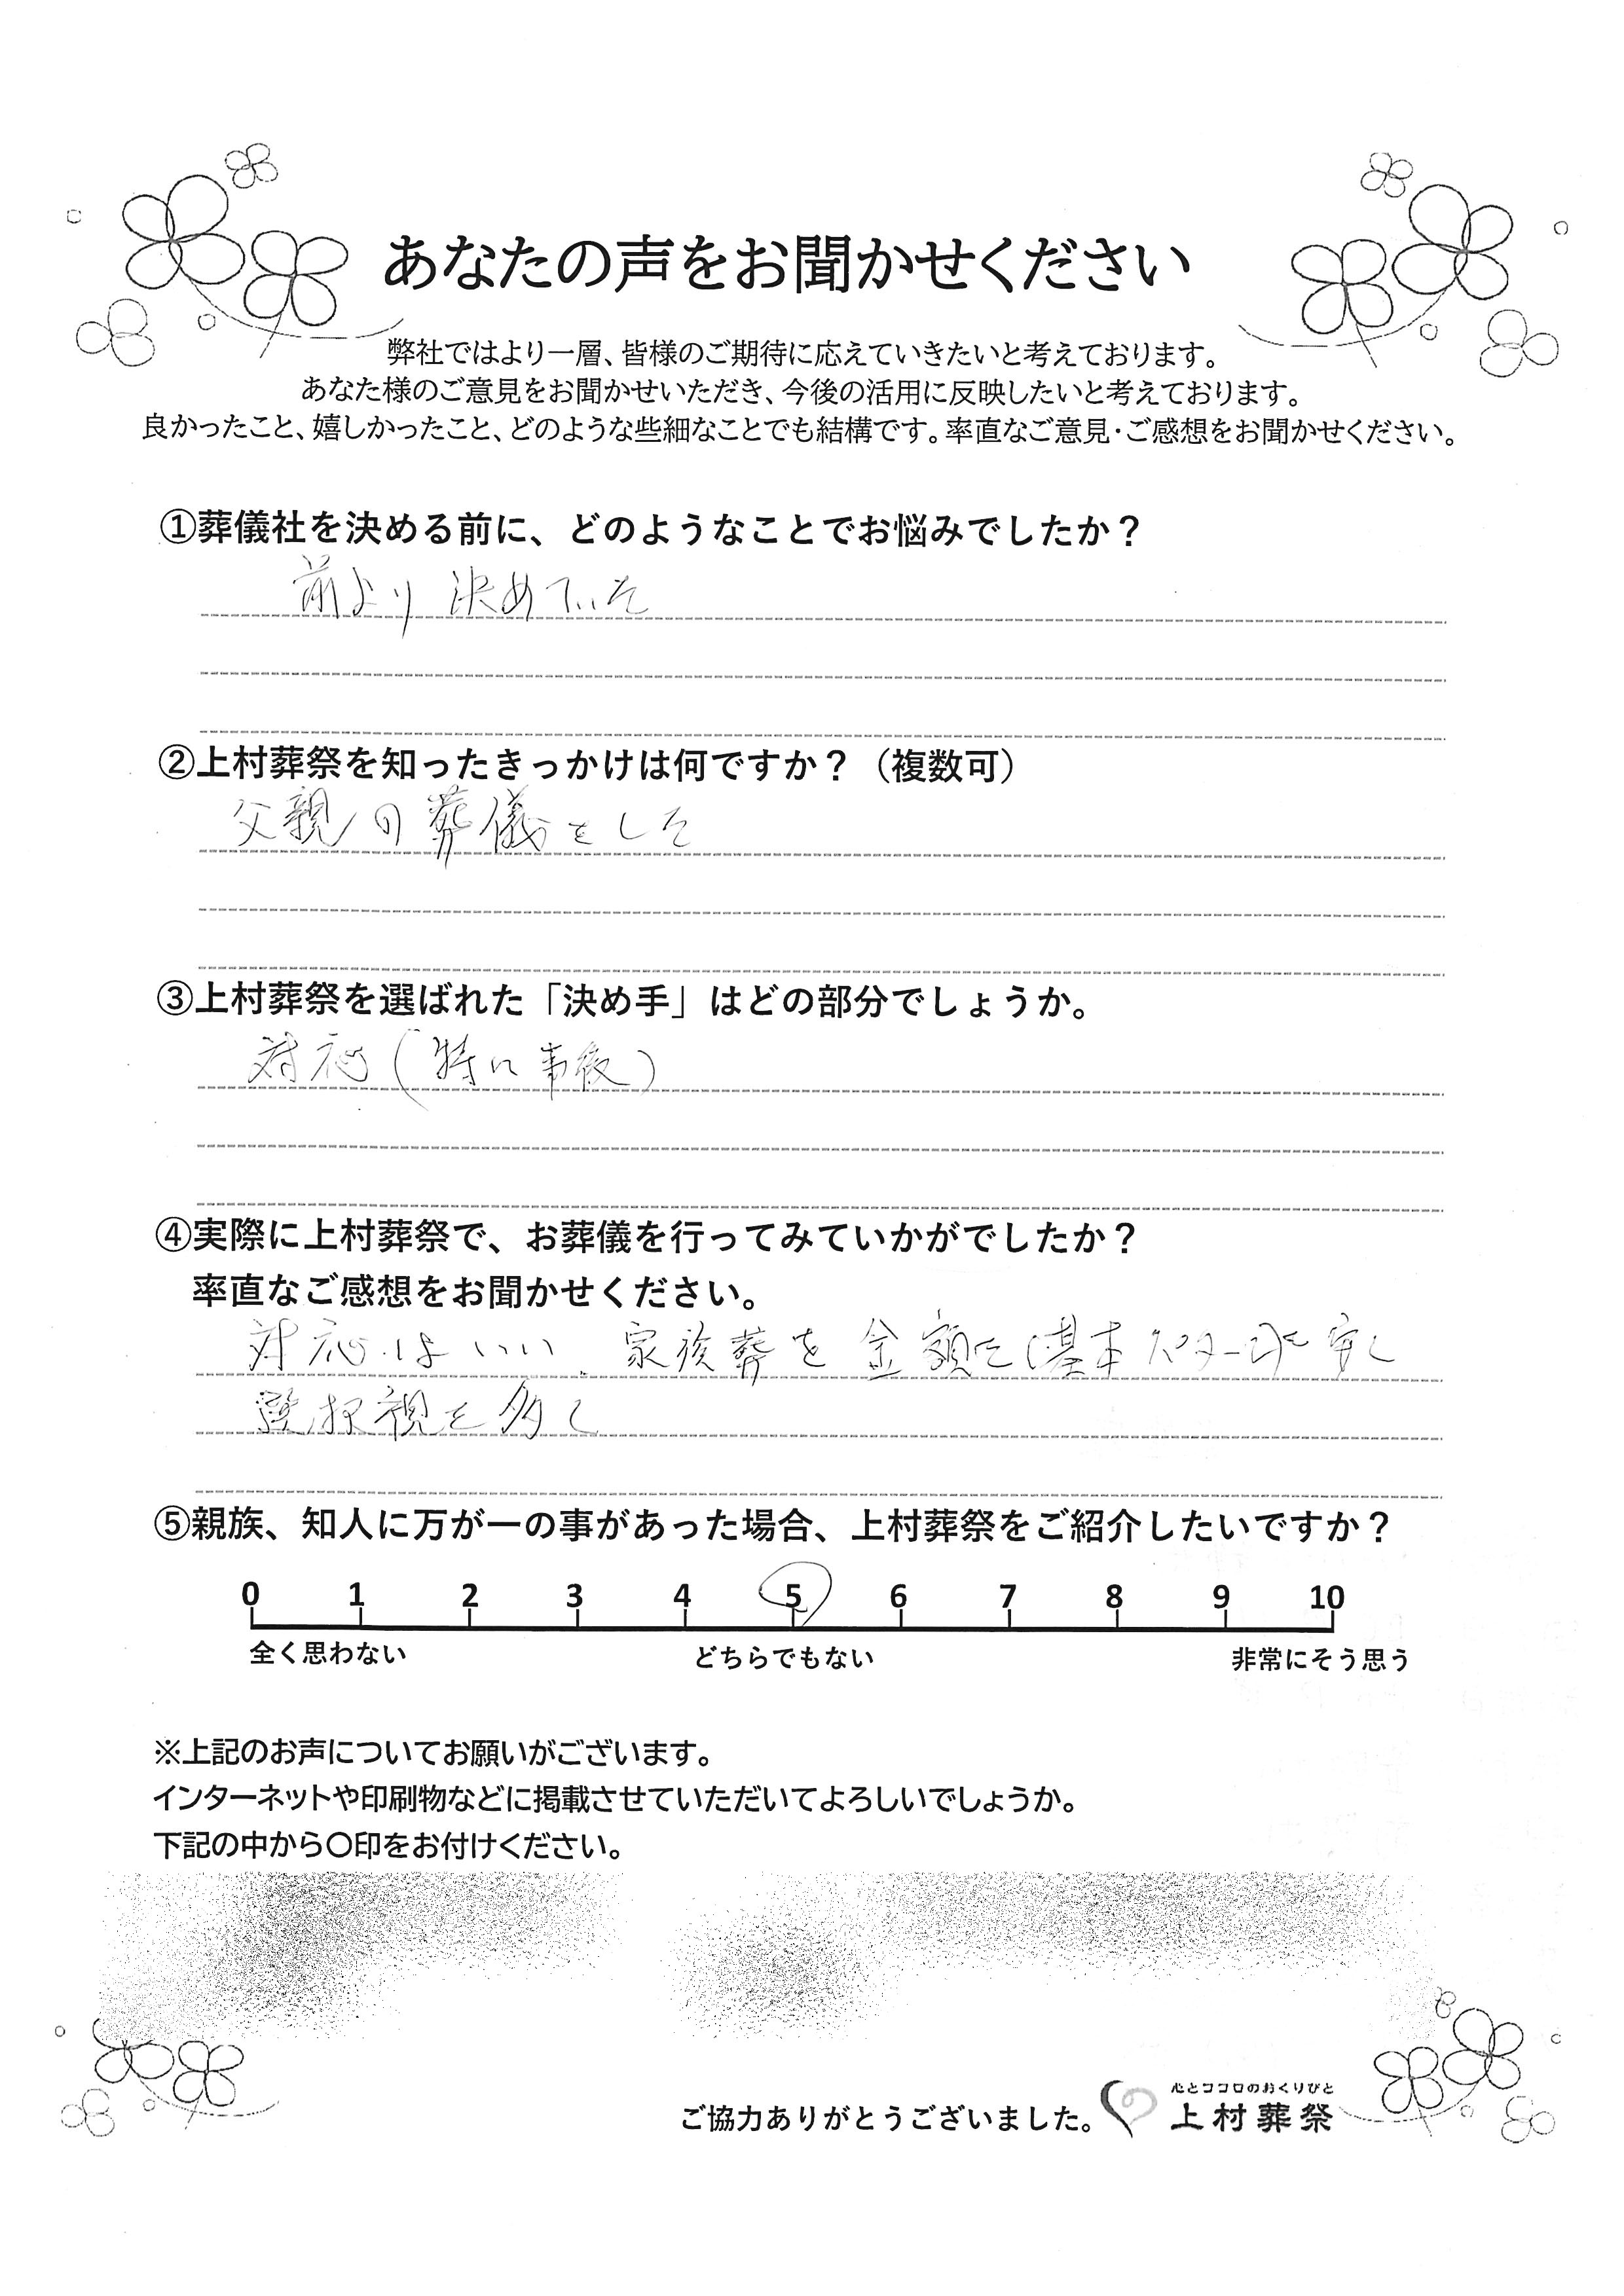 あなたの声をお聞かせください
弊社ではより一層、皆様のご期待に応えていきたいと考えております。
あなた様のご意見をお聞かせいただき、今後の活用に反映したいと考えております。
良かったこと、嬉しかったこと、どのような些細なことでも結構です。率直なご意見・ご感想をお聞かせください。
①葬儀社を決める前に、どのようなことでお悩みでしたか？
前より決めていた
②上村葬祭を知ったきっかけは何ですか？（複数可）
父親の葬儀をした
③上村葬祭を選ばれた「決め手」はどの部分でしょうか。
対応(特に事後)
④実際に上村葬祭で、お葬儀を行ってみていかがでしたか？
率直なご感想をお聞かせください。
対応はいい、家族葬を金額を(基本パターンを安し
選択視を多し
⑤親族、知人に万が一の事があった場合、上村葬祭をご紹介したいですか？
0 1 2 3 4 5 6 7 8 9 10
全く思わない どちらでもない 非常にそう思う
※上記のお声についてお願いがございます。
インターネットや印刷物などに掲載させていただいてよろしいでしょうか。
下記の中から〇印をお付けください。
心とココロのおくりびと
ご協力ありがとうございました。上村葬祭